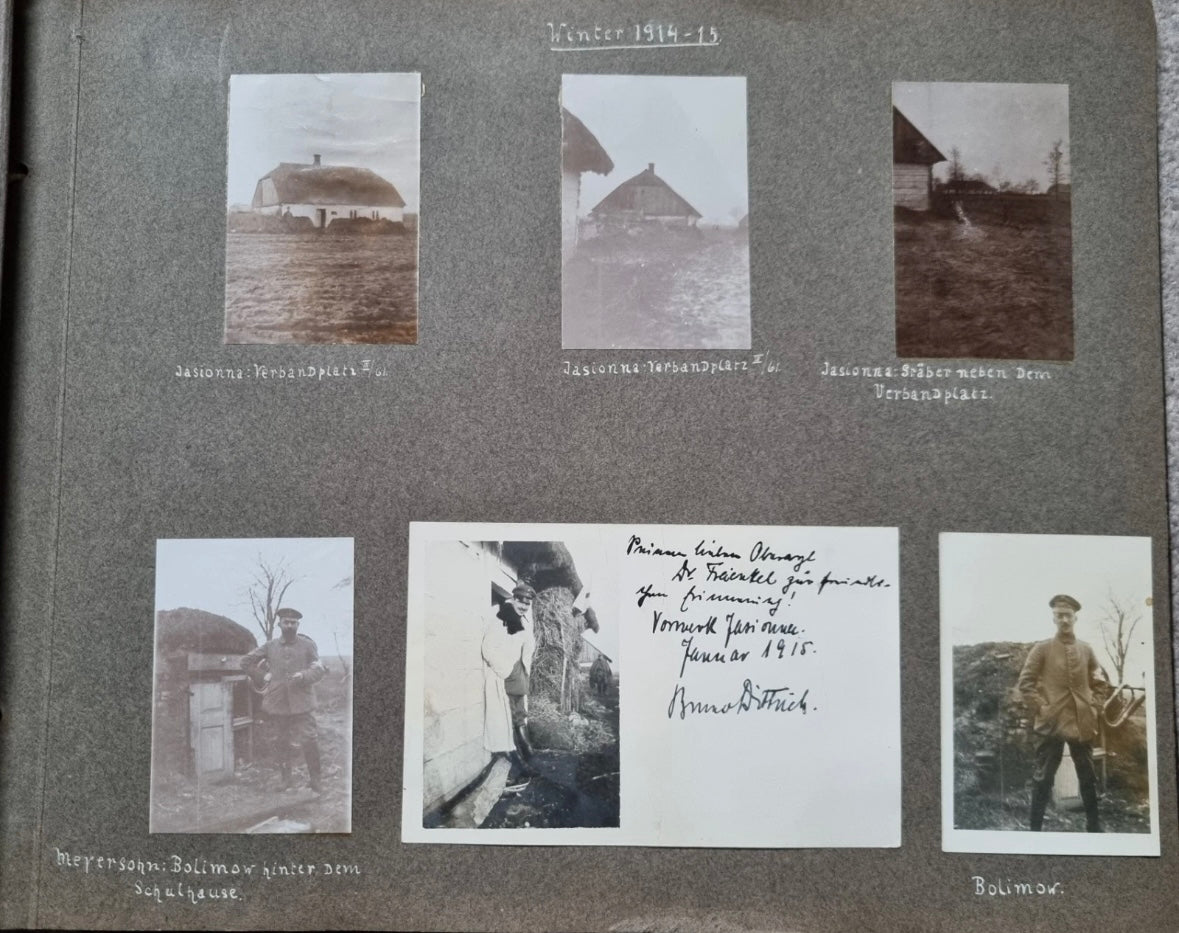 Winter 1914-15
Jasionna: Verbandplatz II/61.
Jasionna: Verbandplatz II/61.
Jasionna: Gräber neben dem
Verbandplatz.
Meyersohn: Bolimow hinter dem
Schulhause.
Seinem lieben Oberarzt
Dr. Fraenkel zur freundli-
chen Erinnerung!
Vorwerk Jasionna.
Januar 1915.
Bruno Dittrich.
Bolimow.